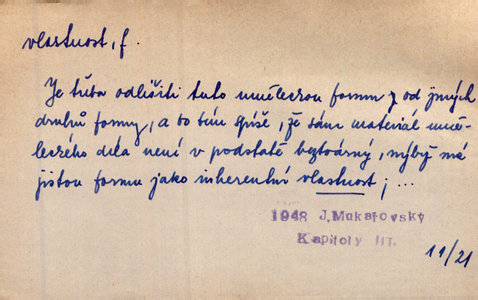 vlastnost, f.
Je třeba odlišiti tuto uměleckou formu od jiných
druhů formy, a to tím spíše, že sám materiál umě-
leckého díla není v podstatě beztvárný, nýbrž má
jistou formu jako inherentní vlastnost; ...
1948 J. Mukařovský
Kapitoly III.
11/21